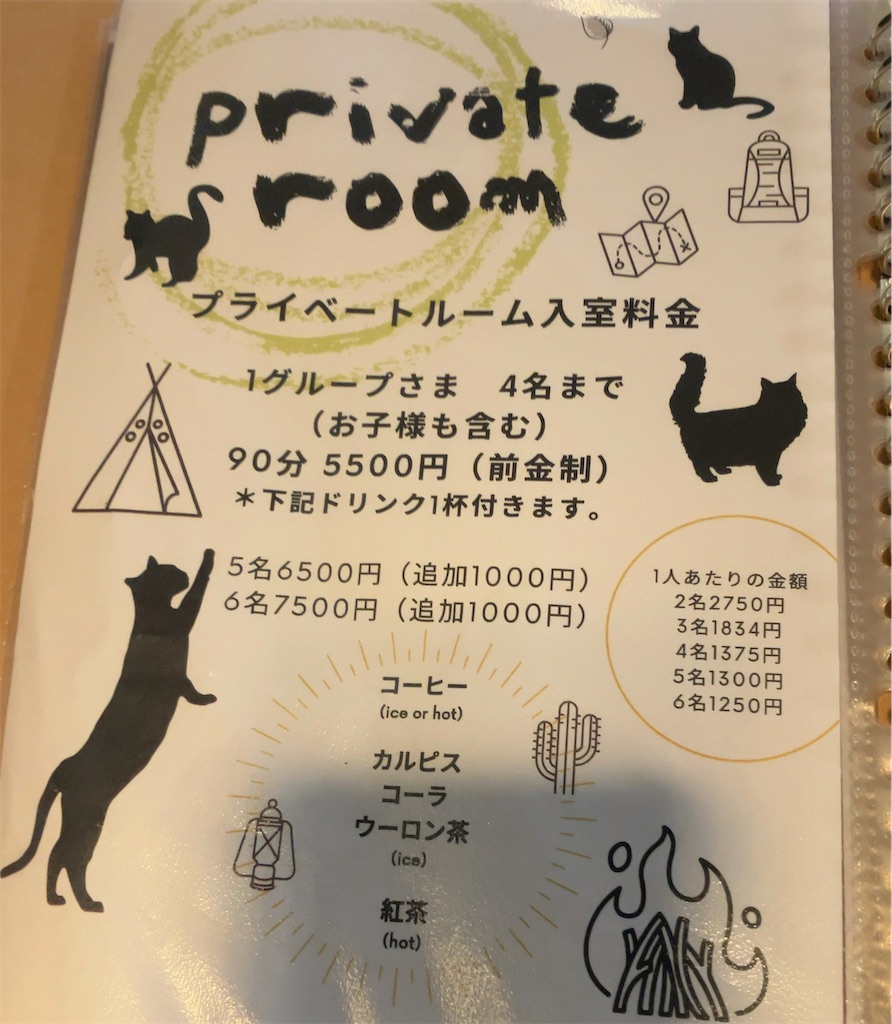 private
room
プライベートルーム入室料金
1グループさま 4名まで
（お子様も含む）
90分 5500円（前金制）
＊下記ドリンク1杯付きます。
5名6500円（追加1000円）
6名7500円（追加1000円）
1人あたりの金額
2名2750円
3名1834円
4名1375円
5名1300円
6名1250円
コーヒー
(ice or hot)
カルピス
コーラ
ウーロン茶
(ice)
紅茶
(hot)